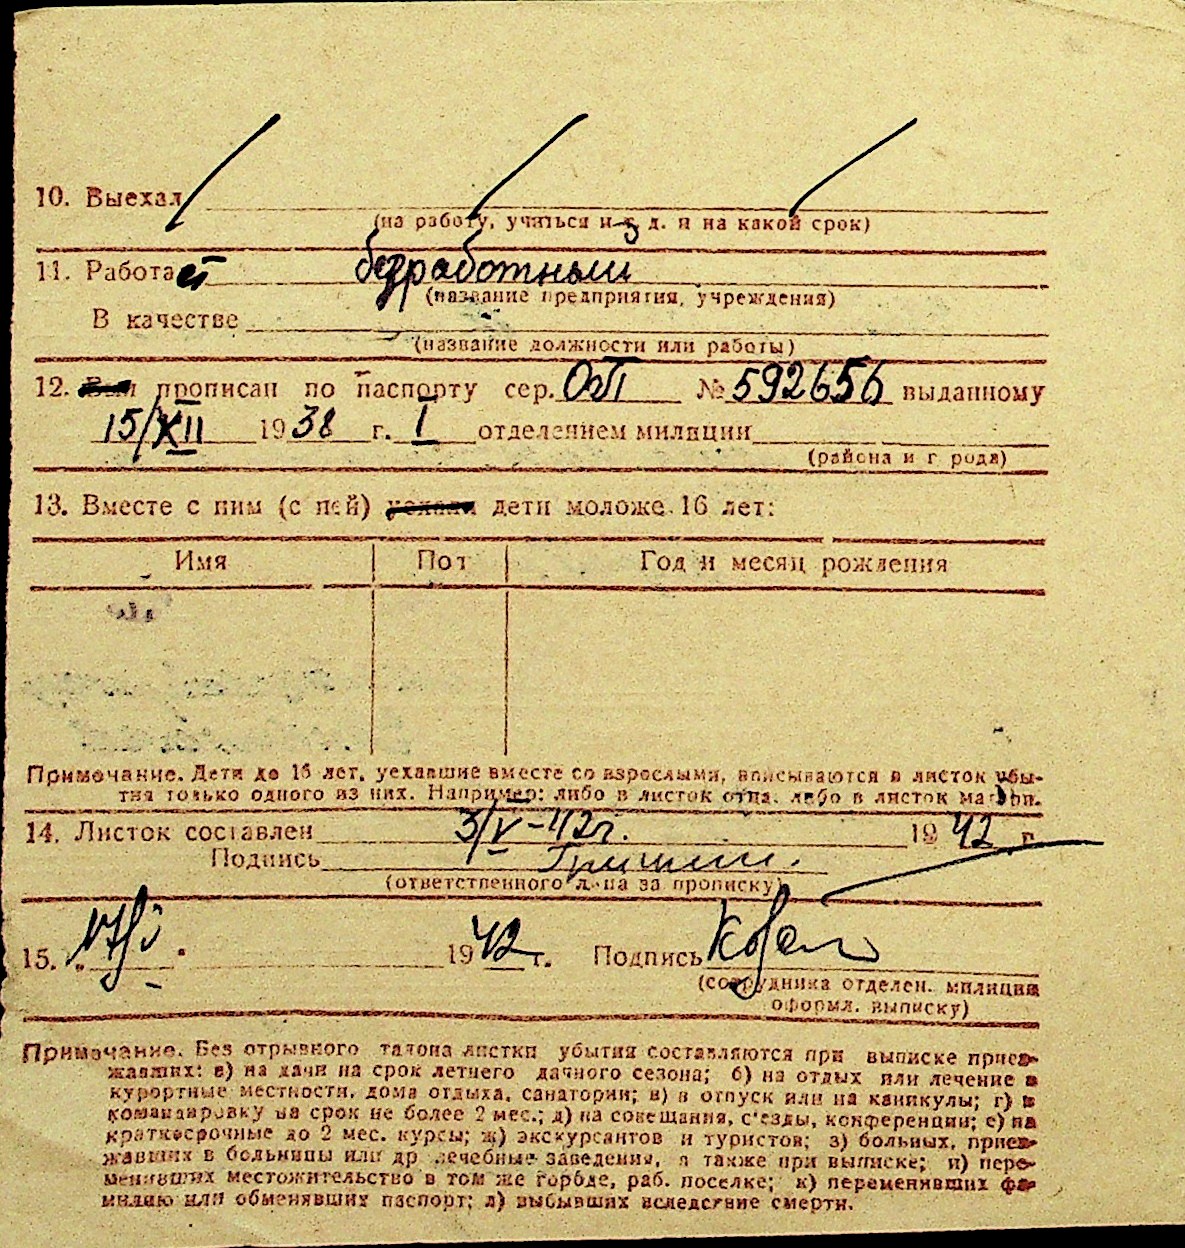 10. Выехал
(на работу, учиться и т. д. и на какой срок)
11. Работает безработный
(название предприятия, учреждения)
В качестве
(название должности или работы)
12. прописан по паспорту сер. № 592656 выданному
15/XII 1938 г. I отделением милиции
(района и города)
13. Вместе с ним (с ней) уехали дети моложе 16 лет:
Имя Пол Год и месяц рождения
Примечание. Дети до 16 лет, уехавшие вместе со взрослыми, вписываются в листок убы-
тия только одного из них. Например: либо в листок отца, либо в листок матери.
14. Листок составлен 3/V-42г. 1942 г.
Подпись
(ответственного лица за прописку)
15. " " 1942 г. Подпись
(сотрудника отделен. милиции
оформл. выписку)
Примечание. Без отрывного талона листки убытия составляются при выписке приез-
жавших: а) на дачи на срок летнего дачного сезона; б) на отдых или лечение в
курортные местности, дома отдыха, санатории; в) в отпуск или на каникулы; г) в
командировку на срок не более 2 мес.; д) на совещания, с'езды, конференции; е) на
краткосрочные до 2 мес. курсы; ж) экскурсантов и туристов; з) больных, приез-
жавших в больницы или др лечебные заведения, а также при выписке; и) пере-
менивших местожительство в том же городе, раб. поселке; к) переменивших фа-
милию или обменявших паспорт; л) выбывших вследствие смерти.